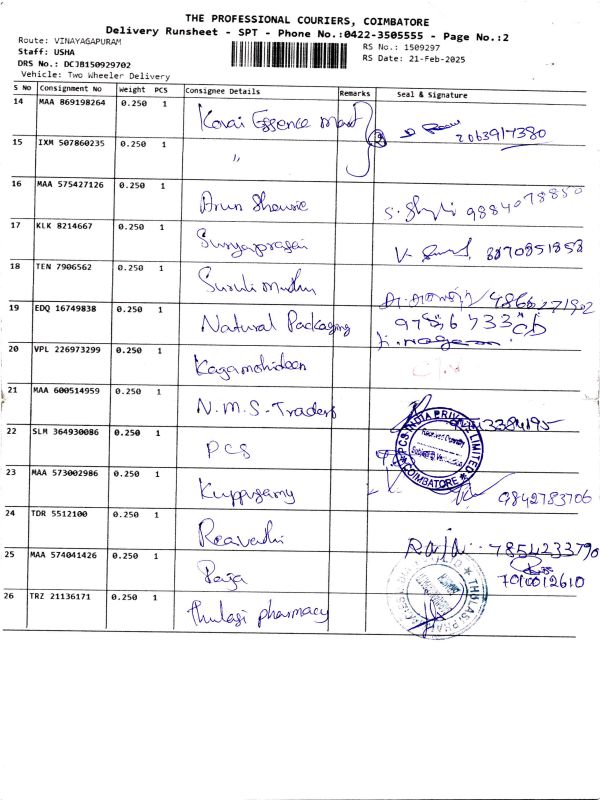 THE PROFESSIONAL COURIERS, COIMBATORE
Delivery Runsheet - SPT - Phone No.:0422-3505555 - Page No.:2
Route: VINAYAGAPURAM
Staff: USHA
DRS No.: DCJB150929702
Vehicle: Two Wheeler Delivery
RS No.: 1509297
RS Date: 21-Feb-2025
S No Consignment No Weight PCS Consignee Details Remarks Seal & Signature
14 MAA 869198264 0.250 1 Kovai Essence Mart 2063917380
15 IXM 507860235 0.250 1 "
16 MAA 575427126 0.250 1 Arun Shourie 9884078850
17 KLK 8214667 0.250 1 Suryaprasai 8870851858
18 TEN 7906562 0.250 1 Suruli muthu
19 EDQ 16749838 0.250 1 Natural Packaging
20 VPL 226973299 0.250 1 Kagamohideen
21 MAA 600514959 0.250 1 N.M.S-Traders
22 SLM 364930086 0.250 1 PCS PCS INDIA PRIVATE LIMITED COIMBATORE
23 MAA 573002986 0.250 1 Kuppusamy 9842783706
24 TDR 5512100 0.250 1 Raja 7854233790
25 MAA 574041426 0.250 1 Raja 7010012610
26 TRZ 21136171 0.250 1 thulasi pharmacy